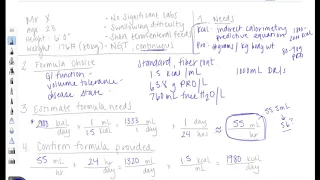 Mr X
age: 28
weight: 176# (80kg)
- No significant labs
- Swallowing difficulty
- Short term enteral feeds
- NGT, continuous
1. Needs
Kcal: indirect calorimetry
predictive equations
Pro: grams/kg body wt
80-96g
PRO
2 Formula Choice
GI function
volume tolerance
disease state
standard, fiber cont
1.5 kcal/mL
63.8 g PRO/L
760 mL free H2O/L
1000mL DRI/s
3 Estimate formula needs
kcal
day
1 mL
1.5 kcal
= 1333 mL
1 day
1 day
24 hrs
≈ 55 mL
hr
55.5mL
4 Confirm formula provided
55 mL
hr
24 hr
1 day
= 1320 mL
day
1.5 kcal
mL
= 1980 kcal
day